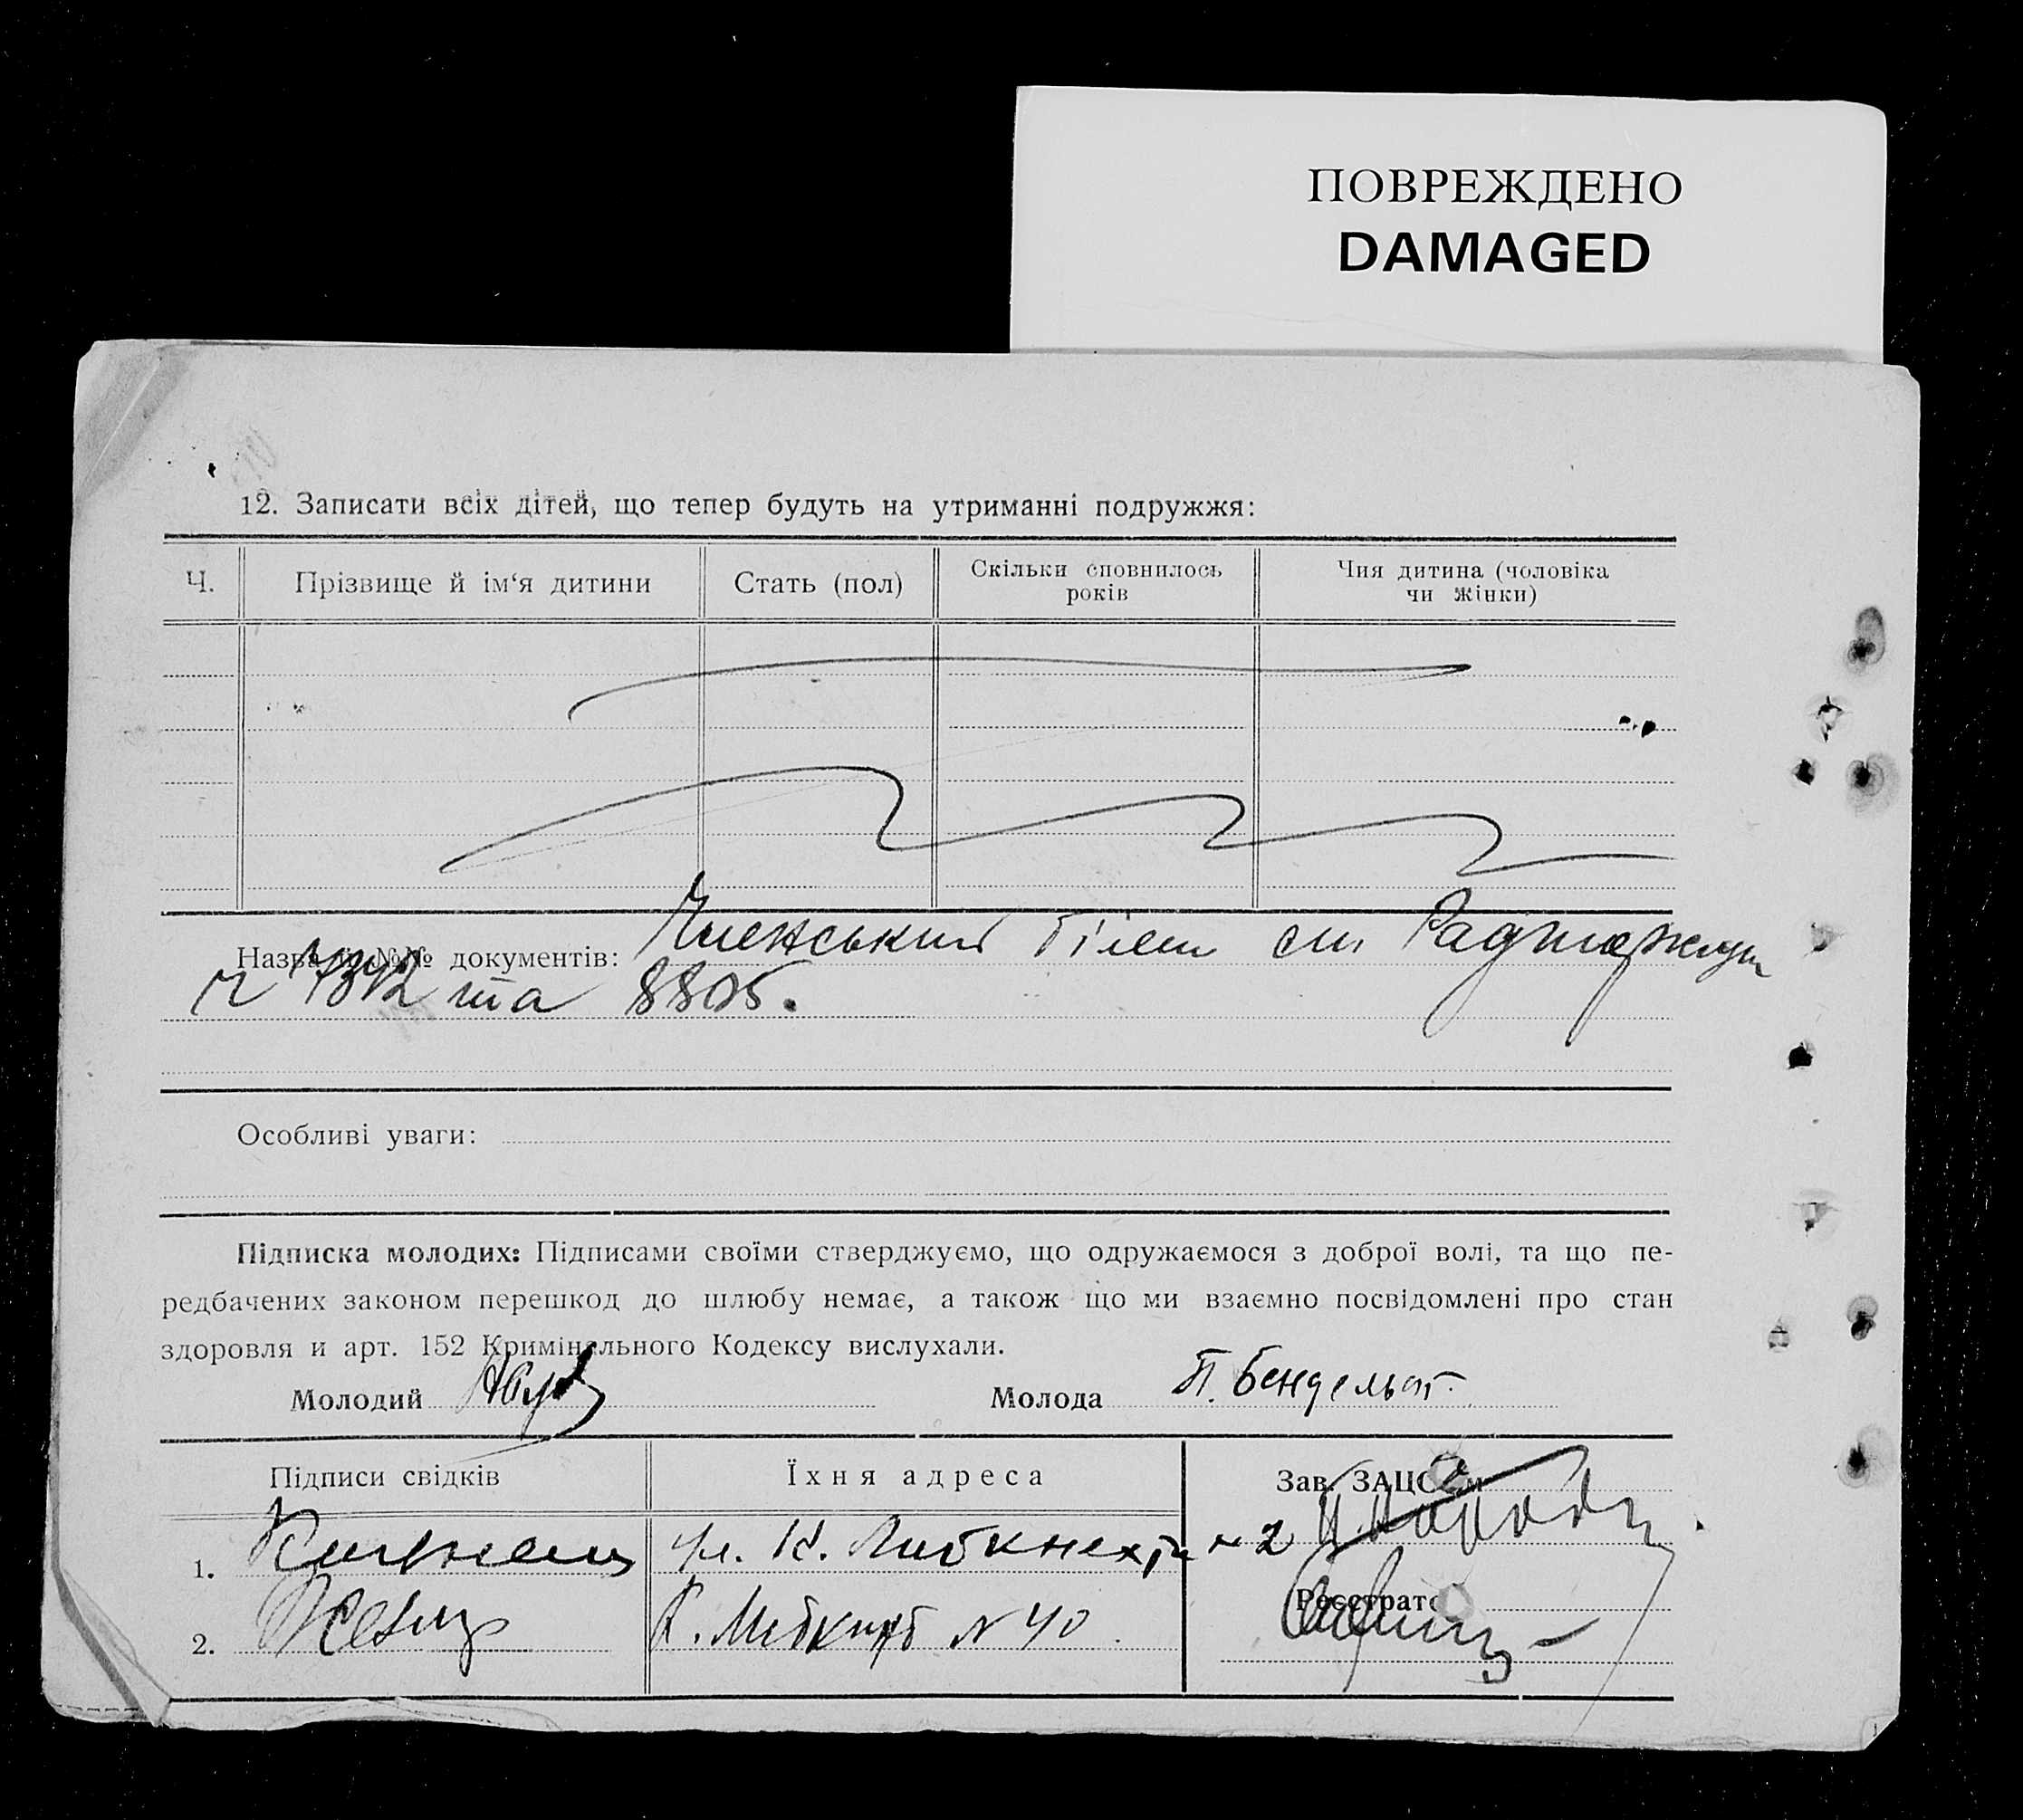 ПОВРЕЖДЕНО
DAMAGED
12. Записати всіх дітей, що тепер будуть на утриманні подружжя:
Ч.
Прізвище й ім‘я дитини
Стать (пол)
Скільки сповнилось років
Чия дитина (чоловіка чи жінки)
Назва й №№ документів: Членський білет сп. Радторжлуж
та 8805.
Особливі уваги:
Підписка молодих: Підписами своїми стверджуємо, що одружаємося з доброї волі, та що пе-
редбачених законом перешкод до шлюбу немає, а також що ми взаємно посвідомлені про стан
здоровля и арт. 152 Кримінального Кодексу вислухали.
Молодий
Молода П. Бендельат.
Підписи свідків
Їхня адреса
Зав. ЗАЦС'ом
1.
ул. К. Либкнехта № 2
Реєстратор
2.
К. Либкнхт № 40